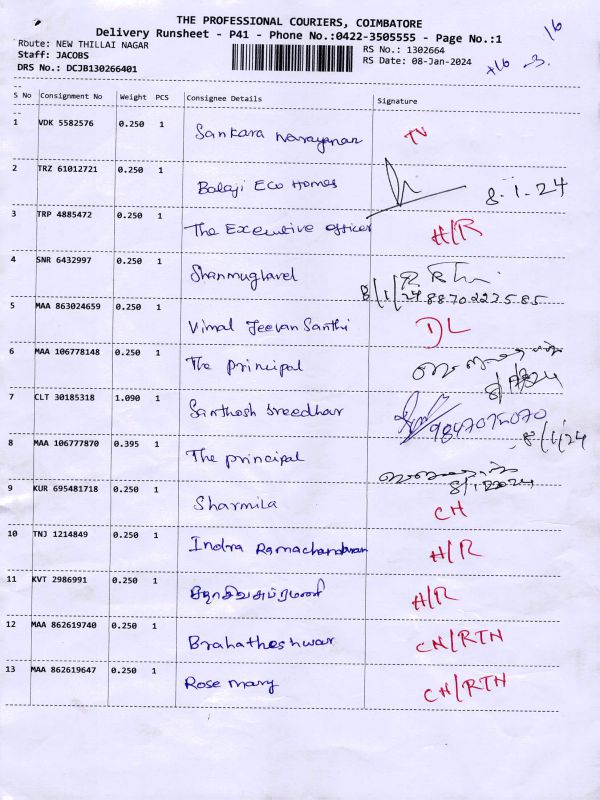 THE PROFESSIONAL COURIERS, COIMBATORE
Delivery Runsheet - P41 - Phone No.:0422-3505555 - Page No.:1
Route: NEW THILLAI NAGAR
RS No.: 1302664
Staff: JACOBS
RS Date: 08-Jan-2024
DRS No.: DCJB130266401
16
+16 -3.
S No Consignment No Weight PCS Consignee Details Signature
1 VDK 5582576 0.250 1 Sankara Narayanan TV
2 TRZ 61012721 0.250 1 Balaji Eco Homes 8.1.24
3 TRP 4885472 0.250 1 The Executive officer H/R
4 SNR 6432997 0.250 1 Shanmughavel
8/1/24 8870223585
5 MAA 863024659 0.250 1 Vimal Jeevan Santhi DL
6 MAA 106778148 0.250 1 The principal
7 CLT 30185318 1.090 1 Santhosh Sreedhar 9847075070
8/1/24
8 MAA 106777870 0.395 1 The principal
8/1/2024
9 KUR 695481718 0.250 1 Sharmila CH
10 TNJ 1214849 0.250 1 Indra Ramachandran H/R
11 KVT 2986991 0.250 1 H/R
12 MAA 862619740 0.250 1 Brahatheshwar CH/RTN
13 MAA 862619647 0.250 1 Rose mary CH/RTN